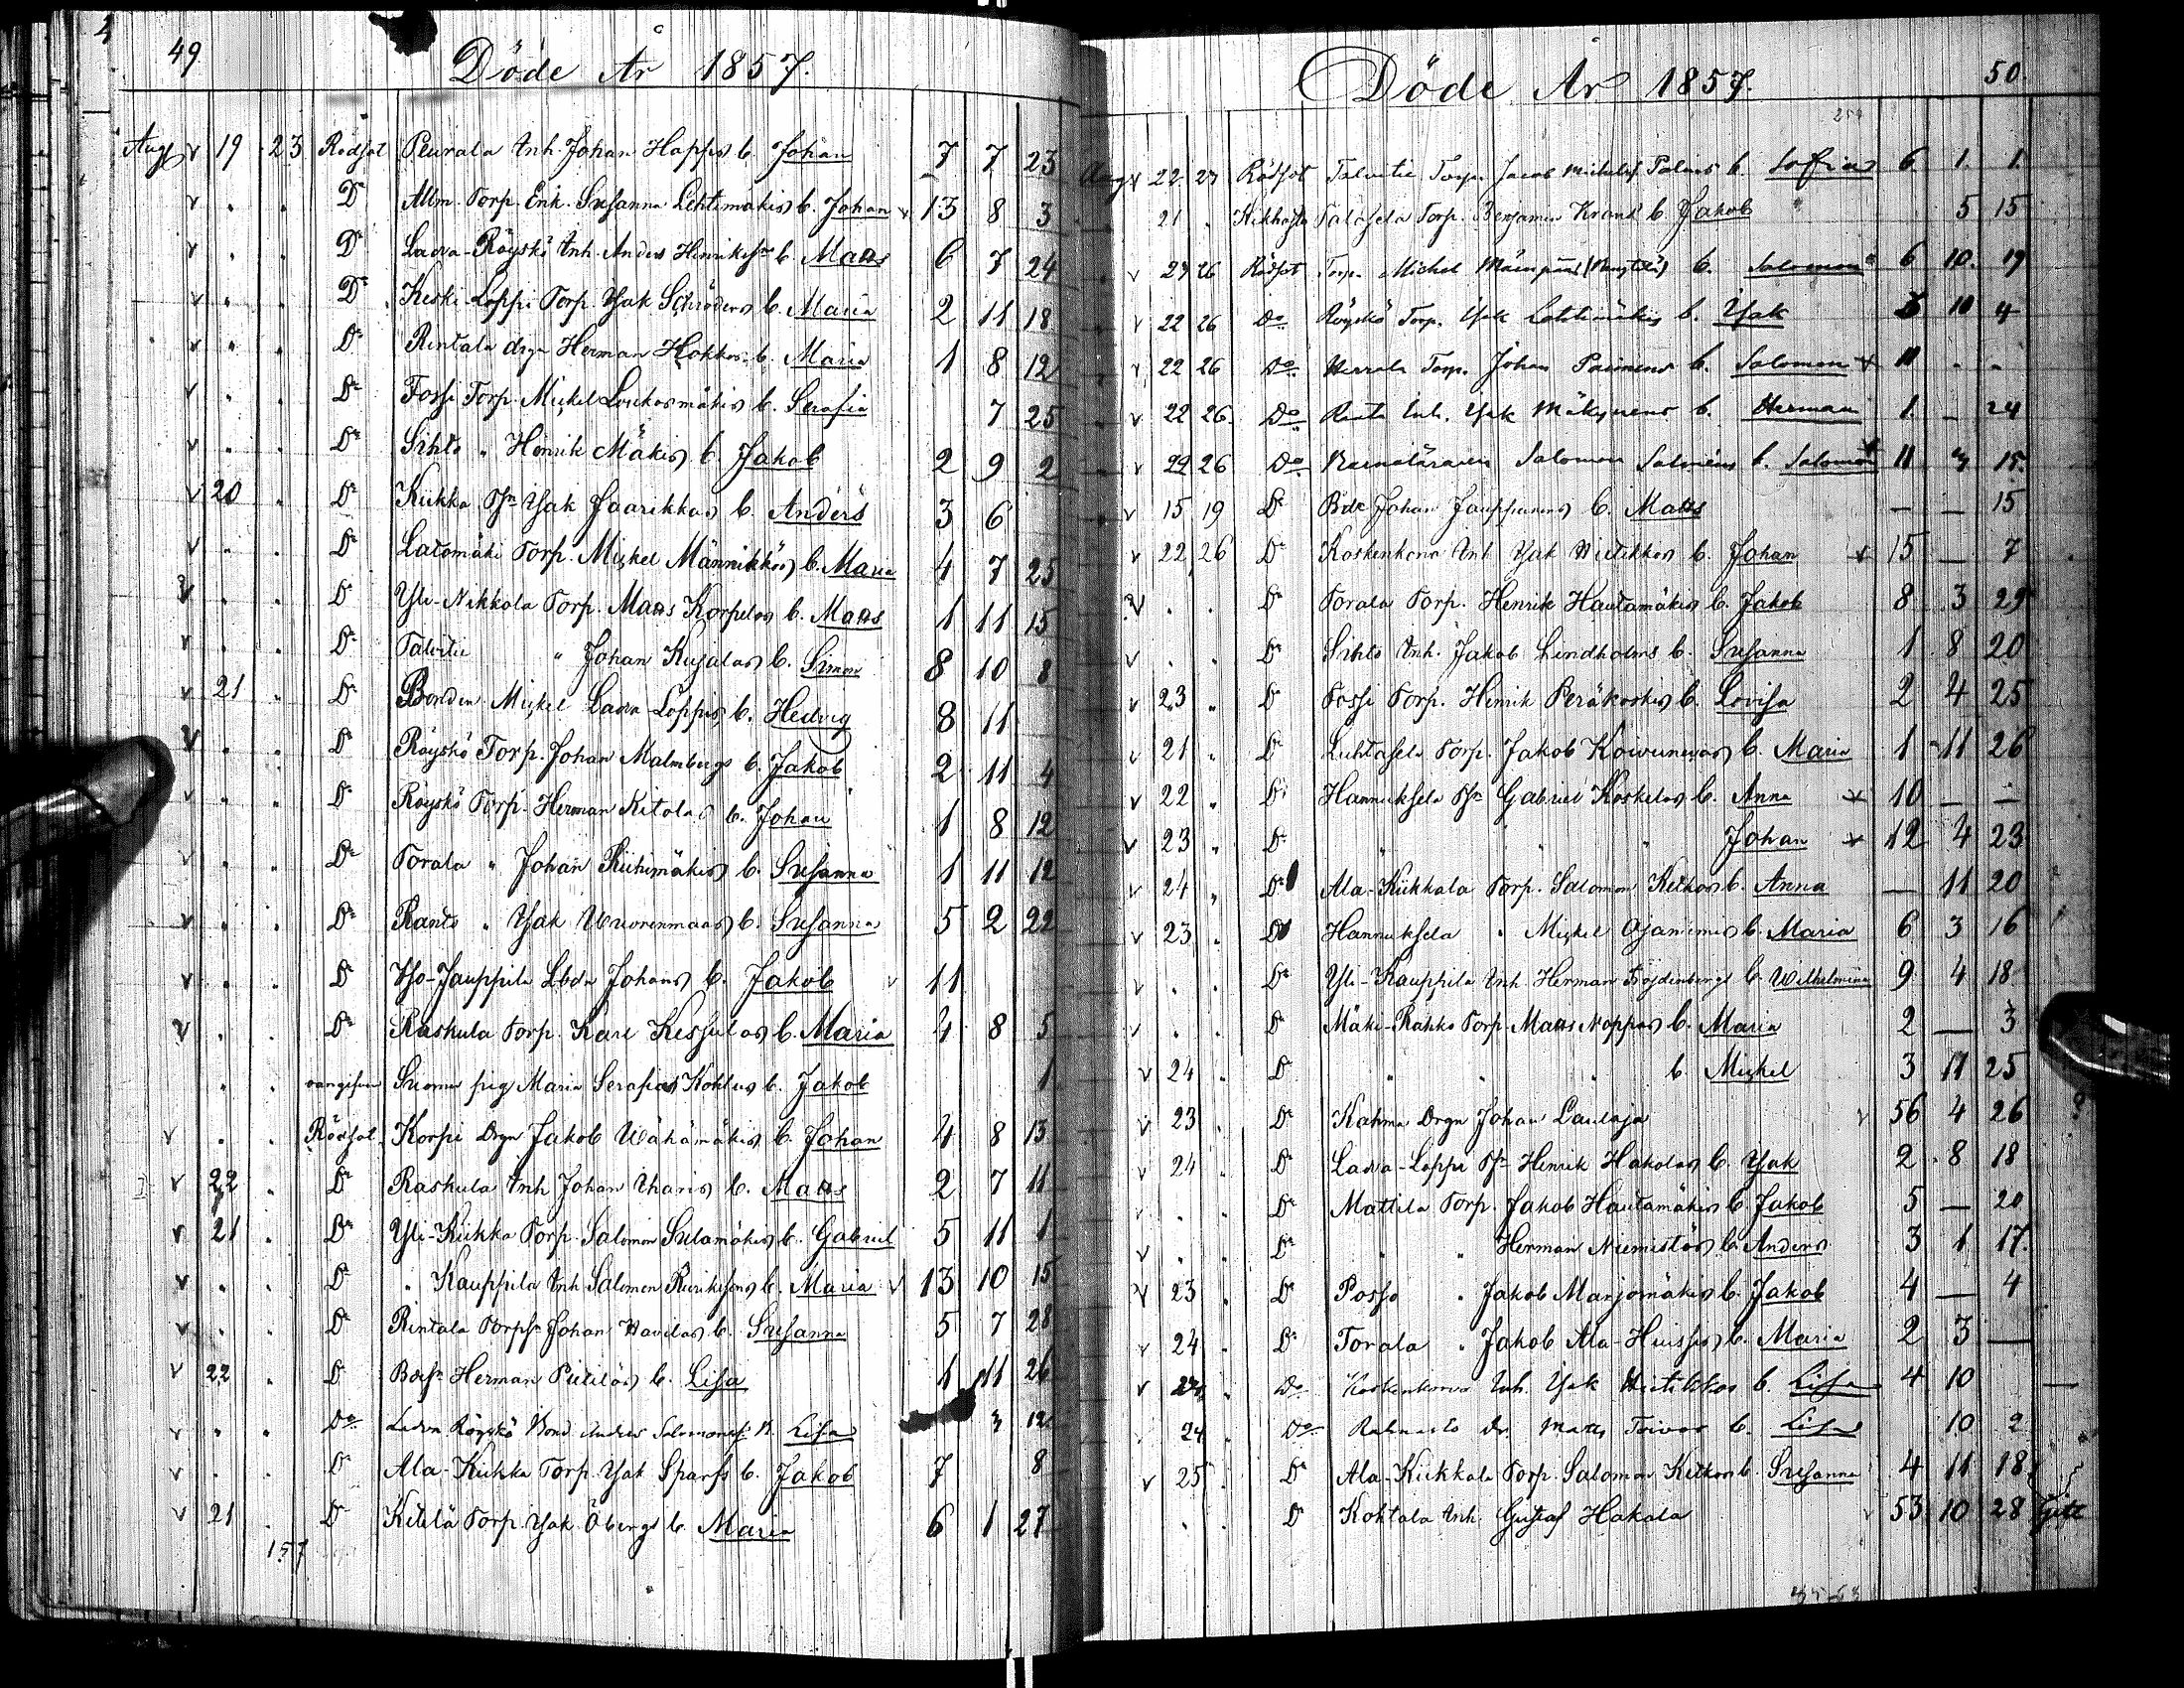 49
Döde År 1857.
Aug v 19 23 Rödsot Peurala Inh. Johan Happos b. Johan 7 7 23
v " " Do Allm. Torp. Enk. Susanna Lehtimäkis b. Johan v 13 8 3
v " " Do Ladva-Röyskö Inh. Anders Henrikss b. Matts 6 7 24
v " " Do Keski-Loppi Torp. Isak Schröders b. Maria 2 11 18
v " " Do Rintala drgn Herman Hokkas b. Maria 1 8 12
v " " Do Fossi Torp. Mickel Loukasmäkis b. Serafia 7 25
v " " Do Sihto " Henrik Mäkis b. Jakob 2 9 2
v 20 " Do Kiikka Isak Jaarikkas b. Anders 3 6
v " " Do Latomäki Torp. Mickel Männikkös b. Maria 4 7 25
v " " Do Yli-Nikkola Torp. Matts Korpelas b. Matts 1 11 15
v " " Do Talvitie " Johan Kujalas b. Simon 8 10 8
v 21 " Do Bonden Mickel Ladva-Loppis b. Hedvig 8 11
v " " Do Röyskö Torp. Johan Malmbergs b. Jakob 2 11 4
v " " Do Röyskö Torp. Herman Kitolas b. Johan 1 8 12
v " " Do Torala " Johan Riihimäkis b. Susanna 1 11 12
v " " Do Ranto " Isak Wuorenmaas b. Susanna 5 2 22
v " " Do Iso-Jauppila Lbdn Johans b. Jakob v 11
v " " Do Raskula Torp. Karl Kessulas b. Maria 4 8 5
" " Suomu pig Maria Serafias Kohlus b. Jakob 1
v " " Rödsot Korpi Drgn Jakob Wähämäkis b. Johan 4 8 13
v 22 " Do Raskula Inh Johan b. Matts 2 7 11
v 21 " Do Yli-Kiikka Torp. Salomon Sulamäkis b. Gabriel 5 11 1
v " " Do " Kauppila Inh Salomon b. Maria v 13 10 15
v " " Do Rintala Johan Wavilas b. Susanna 5 7 28
v 22 " Do Herman Pietiläs b. Lisa 1 11 26
v " " Do Ladva Röyskö Bond. Anders Salomonss b. Lisa 3 12
v " " Do Ala-Kiikka Torp. Isak Sparfs b. Jakob 7 8
v 21 " Do Kitilä Torp. Isak Öbergs b. Maria 6 1 27
157
Döde År 1857.
50.
254
Aug v 22 27 Rödsot Talvitie Torp. Jacob Michelss Palmis b. Sofia 6 1 1
21 " Kikhosta Torp. Benjamin b. Jakob 5 15
v 23 26 Rödsot Torp. Michel b. Salomon 6 10 19
v 22 26 Do Röyskö Torp. Isak Lehtimäkis b. Isak 10 4
v 22 26 Do Torp. Johan b. Salomon v 11 " "
v 22 26 Do Inh. Isak Mäkynens b. Herman 1 — 24
v 22 26 Do Salomon Salmens b. Salomon 11 3 15
v 15 19 Do Bdn Johan Jauppinens b. Matts — — 15
v 22 26 Do Koskenkorva Inh Isak Wiitikkos b. Johan v 15 — 7
v " " Do Torala Torp. Henrik Hautamäkis b. Jakob 8 3 29
v " " Do Sihto Inh. Jakob Lindholms b. Susanna 1 8 20
v 23 " Do Fossi Torp. Henrik Peräkoskis b. Lovisa 2 4 25
v 21 " Do Luhtasela Torp. Jakob Koivunevas b. Maria 1 11 26
v 22 " Do Hannuksela Gabriel Koskelas b. Anna v 10 — —
v 23 " Do " " " Johan v 12 4 23
v 24 " Do Ala-Kiikkala Torp. Salomon Ketkos b. Anna — 11 20
v 23 " Do Hannuksela " Mickel Ojaniemis b. Maria 6 3 16
v " " Do Yli-Kauppila Inh. Herman Fröjdenbergs b. Wilhelmina 9 4 18
v " " Do Mäki-Rahko Torp. Matts Noppos b. Maria 2 — 3
v 24 " Do " " " b Mickel 3 11 25
v 23 " Do Kahma Drgn Johan Laulaja v 56 4 26 ?
v 24 " Do Ladva-Loppi Henrik Hakolas b. Isak 2 8 18
v " " Do Mattila Torp. Jakob Hautamäkis b Jakob 5 — 20
v " " Do " " Herman Niemistös b. Anders 3 1 17
v 23 " Do Posso " Jakob Marjomäkis b. Jakob 4 — 4
v 24 " Do Torala " Jakob Ala-Huissis b. Maria 2 3 —
v " Do Koskenkorva Inh. Isak Wiitikkos b. Lisa 4 10 —
24 " Do Rahnasto Dr. Matts Toivos b. Lisa 10 2
v 25 " Do Ala-Kiikkala Torp. Salomon Ketkos b. Susanna 4 11 18
" " Do Kohtala Inh Gustaf Hakala v 53 10 28 Gift